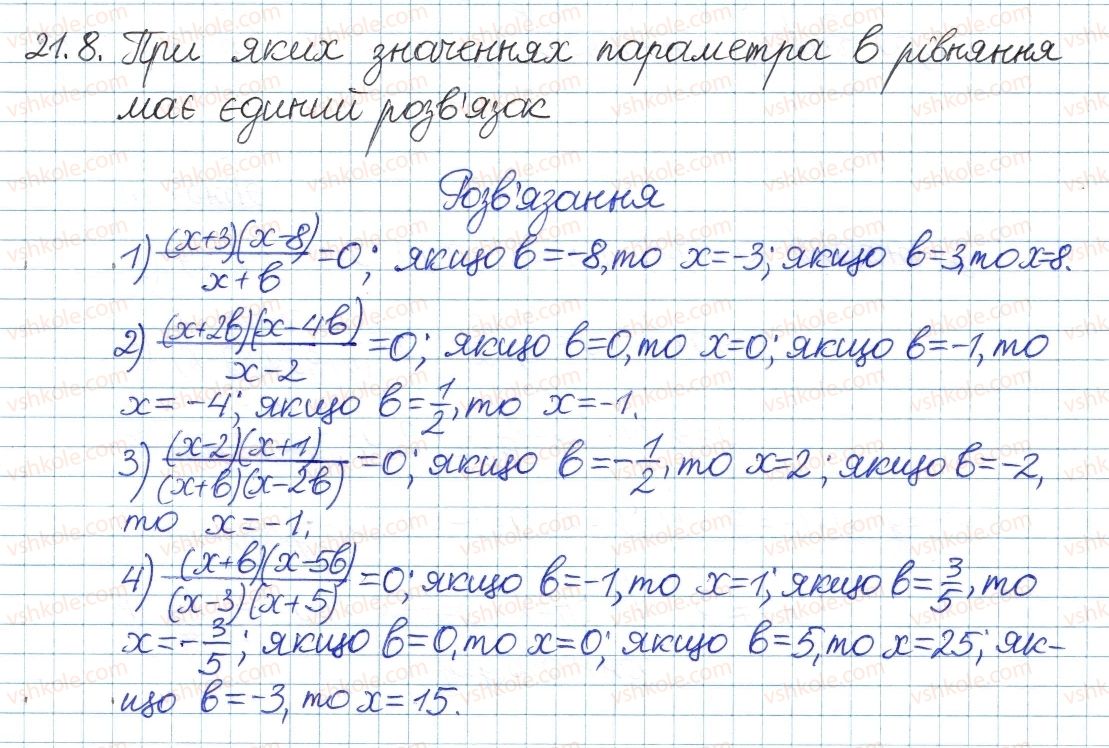 21.8. При яких значеннях параметра b рівняння
має єдиний розв'язок
Розв'язання
1) (x+3)(x-8)/(x+b) = 0; якщо b=-8, то x=-3; якщо b=3, то x=8.
2) (x+2b)(x-4b)/(x-2) = 0; якщо b=0, то x=0; якщо b=-1, то
x=-4; якщо b=1/2, то x=-1.
3) (x-2)(x+1)/((x+b)(x-2b)) = 0; якщо b=-1/2, то x=2; якщо b=-2,
то x=-1;
4) (x+b)(x-5b)/((x-3)(x+5)) = 0; якщо b=-1, то x=1; якщо b=3/5, то
x=-3/5; якщо b=0, то x=0; якщо b=5, то x=25; як-
що b=-3, то x=15.